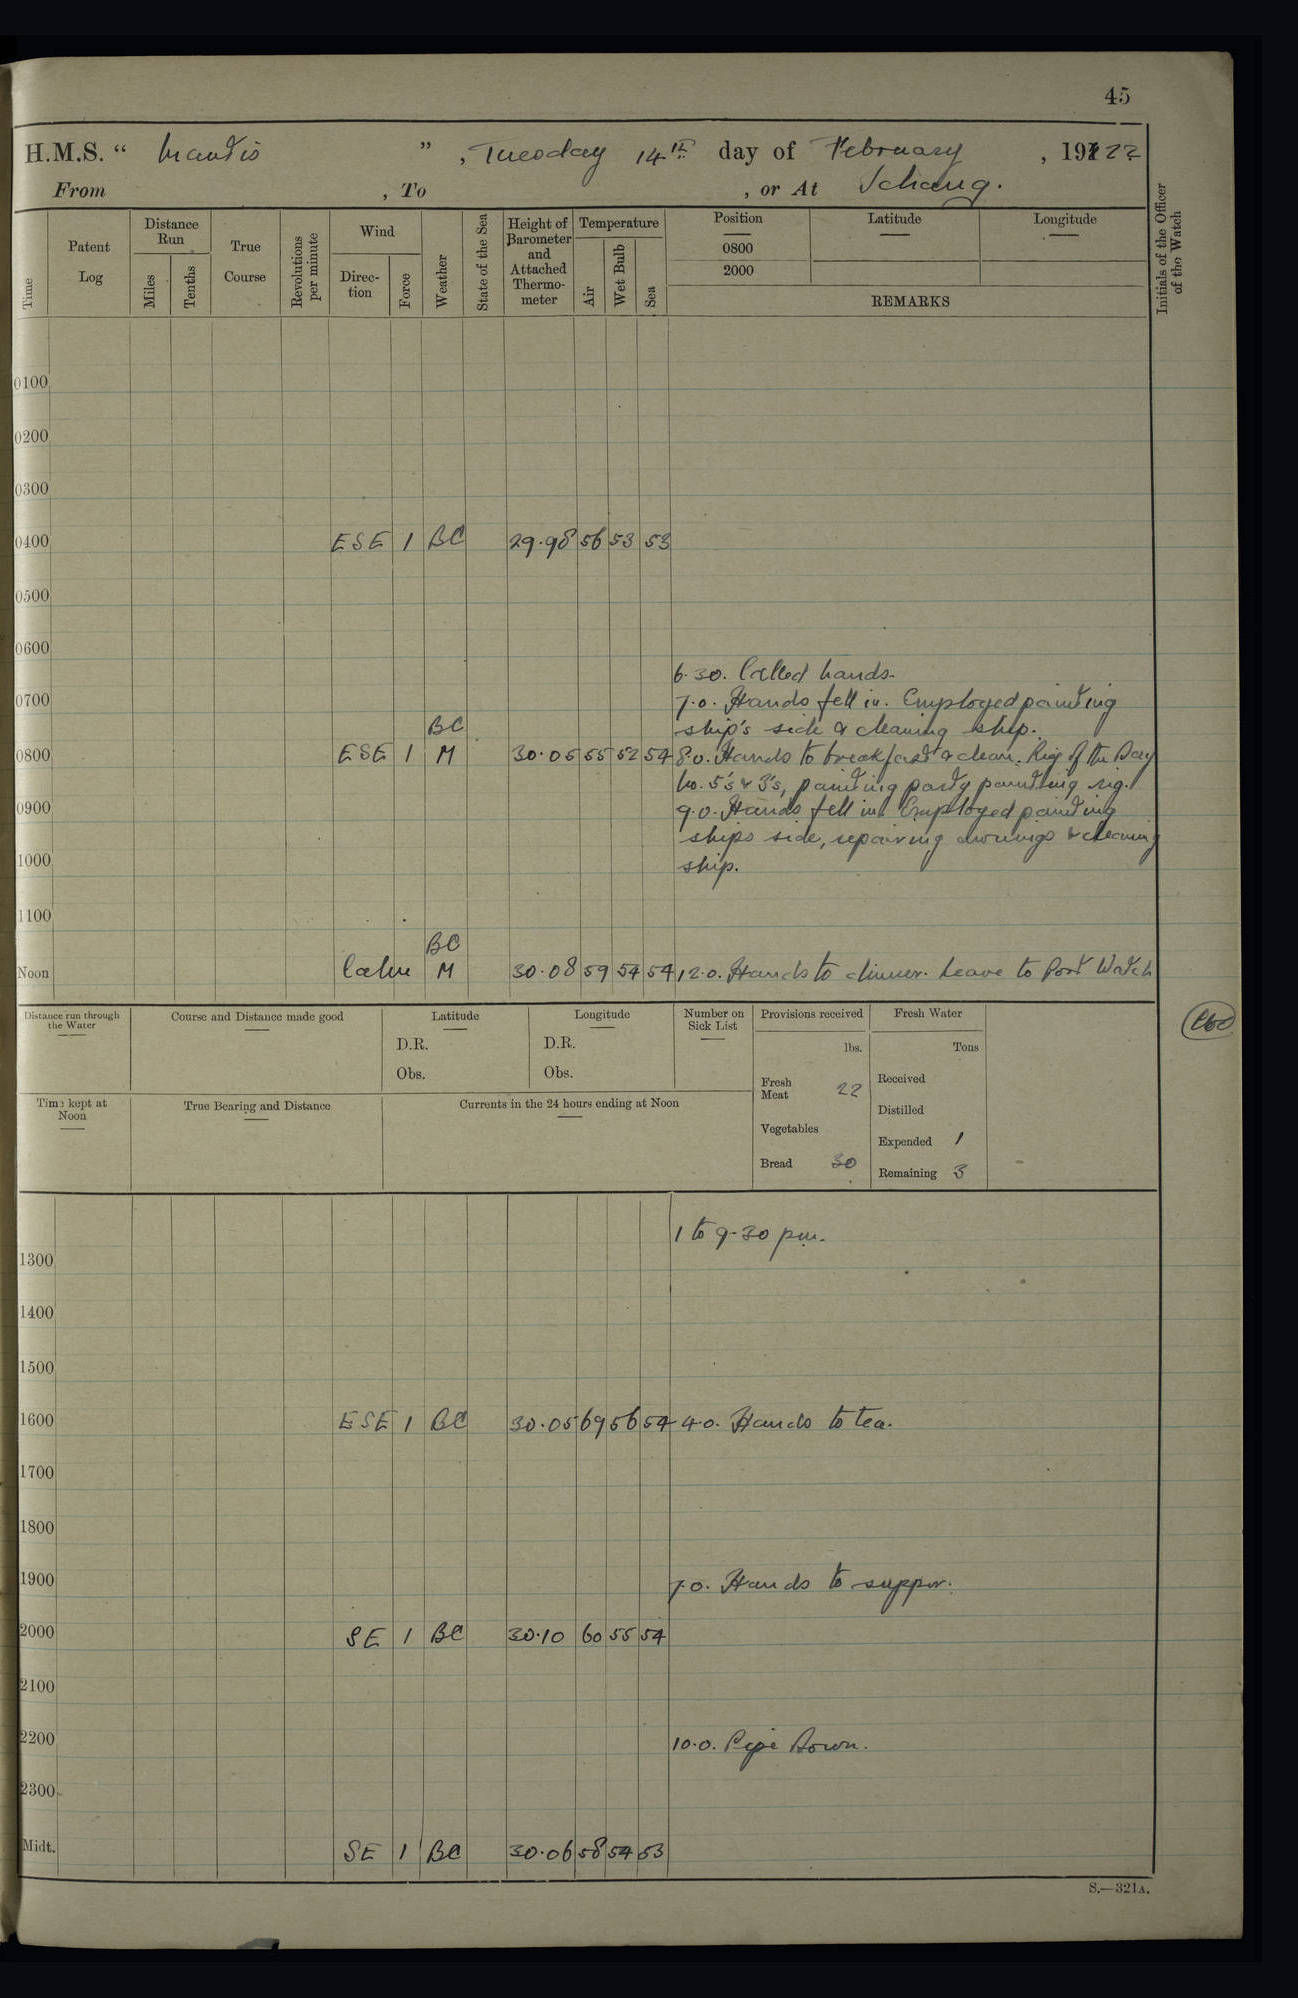 45
H.M.S. " Mantis ", Tuesday 14th day of February, 1922
From , To , or At Ichang.
Time
Patent Log
Distance Run
Miles
Tenths
True Course
Revolutions per minute
Wind
Direction
Force
Weather
State of the Sea
Height of Barometer and Attached Thermometer
Temperature
Air
Wet Bulb
Sea
Position
0800
2000
Latitude
Longitude
REMARKS
Initials of the Officer of the Watch
0100
0200
0300
0400 ESE 1 BC 29.98 56 53 53
0500
0600
6.30. Called hands.
0700 7.0. Hands fell in. Employed painting
BC ship's side & cleaning ship.
0800 ESE 1 M 30.05 55 52 54 8.0. Hands to breakfast & clean. Rig of the Day
No. 5's & 3's, painting party painting rig.
0900 9.0. Hands fell in. Employed painting
ships side, repairing awnings & cleaning
1000 ship.
1100
BC
Noon Calm M 30.08 59 54 54 12.0. Hands to dinner. Leave to Port Watch
Distance run through the Water
Course and Distance made good
Latitude
D.R.
Obs.
Longitude
D.R.
Obs.
Number on Sick List
Provisions received
lbs.
Fresh Meat 22
Vegetables
Bread 30
Fresh Water
Tons
Received
Distilled
Expended 1
Remaining 3
Time kept at Noon
True Bearing and Distance
Currents in the 24 hours ending at Noon
1 to 9.30 pm.
1300
1400
1500
1600 ESE 1 BC 30.05 69 56 54 4.0. Hands to tea.
1700
1800
1900 7.0. Hands to supper.
2000 SE 1 BC 30.10 60 55 54
2100
2200 10.0. Pipe Down.
2300
Midt. SE 1 BC 30.06 58 54 53
S.—321A.